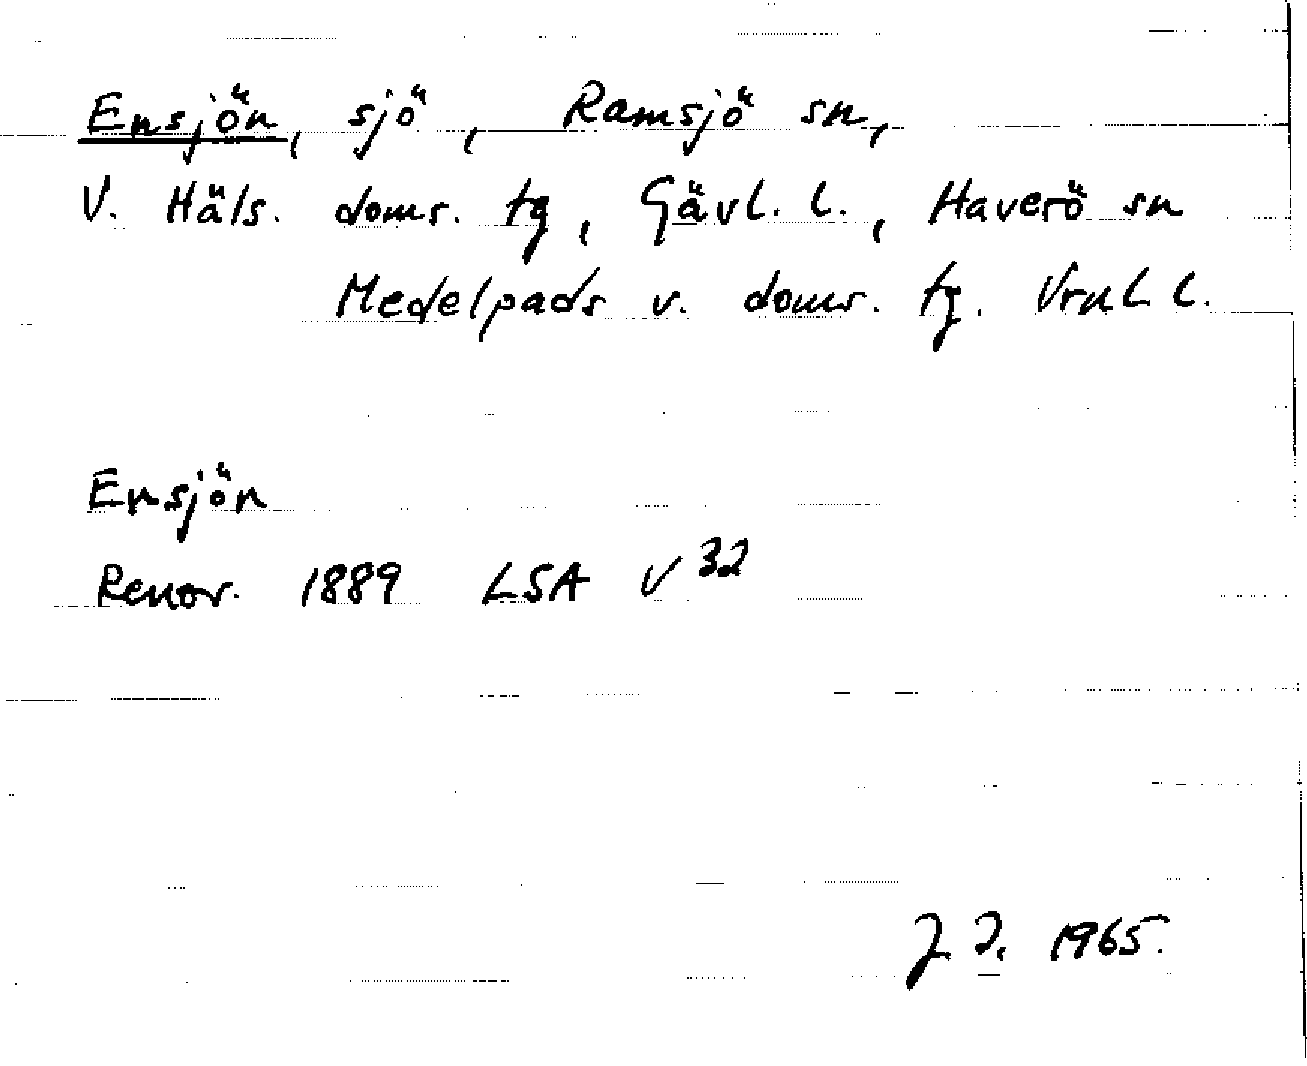 Ensjön, sjö, Ramsjö sn,
V. Häls. doms. tg, Gävl. l., Haverö sn
Medelpads v. doms. tg. Vrnl l.
Ensjön
Renov. 1889 LSA V 32
J. I. 1965.